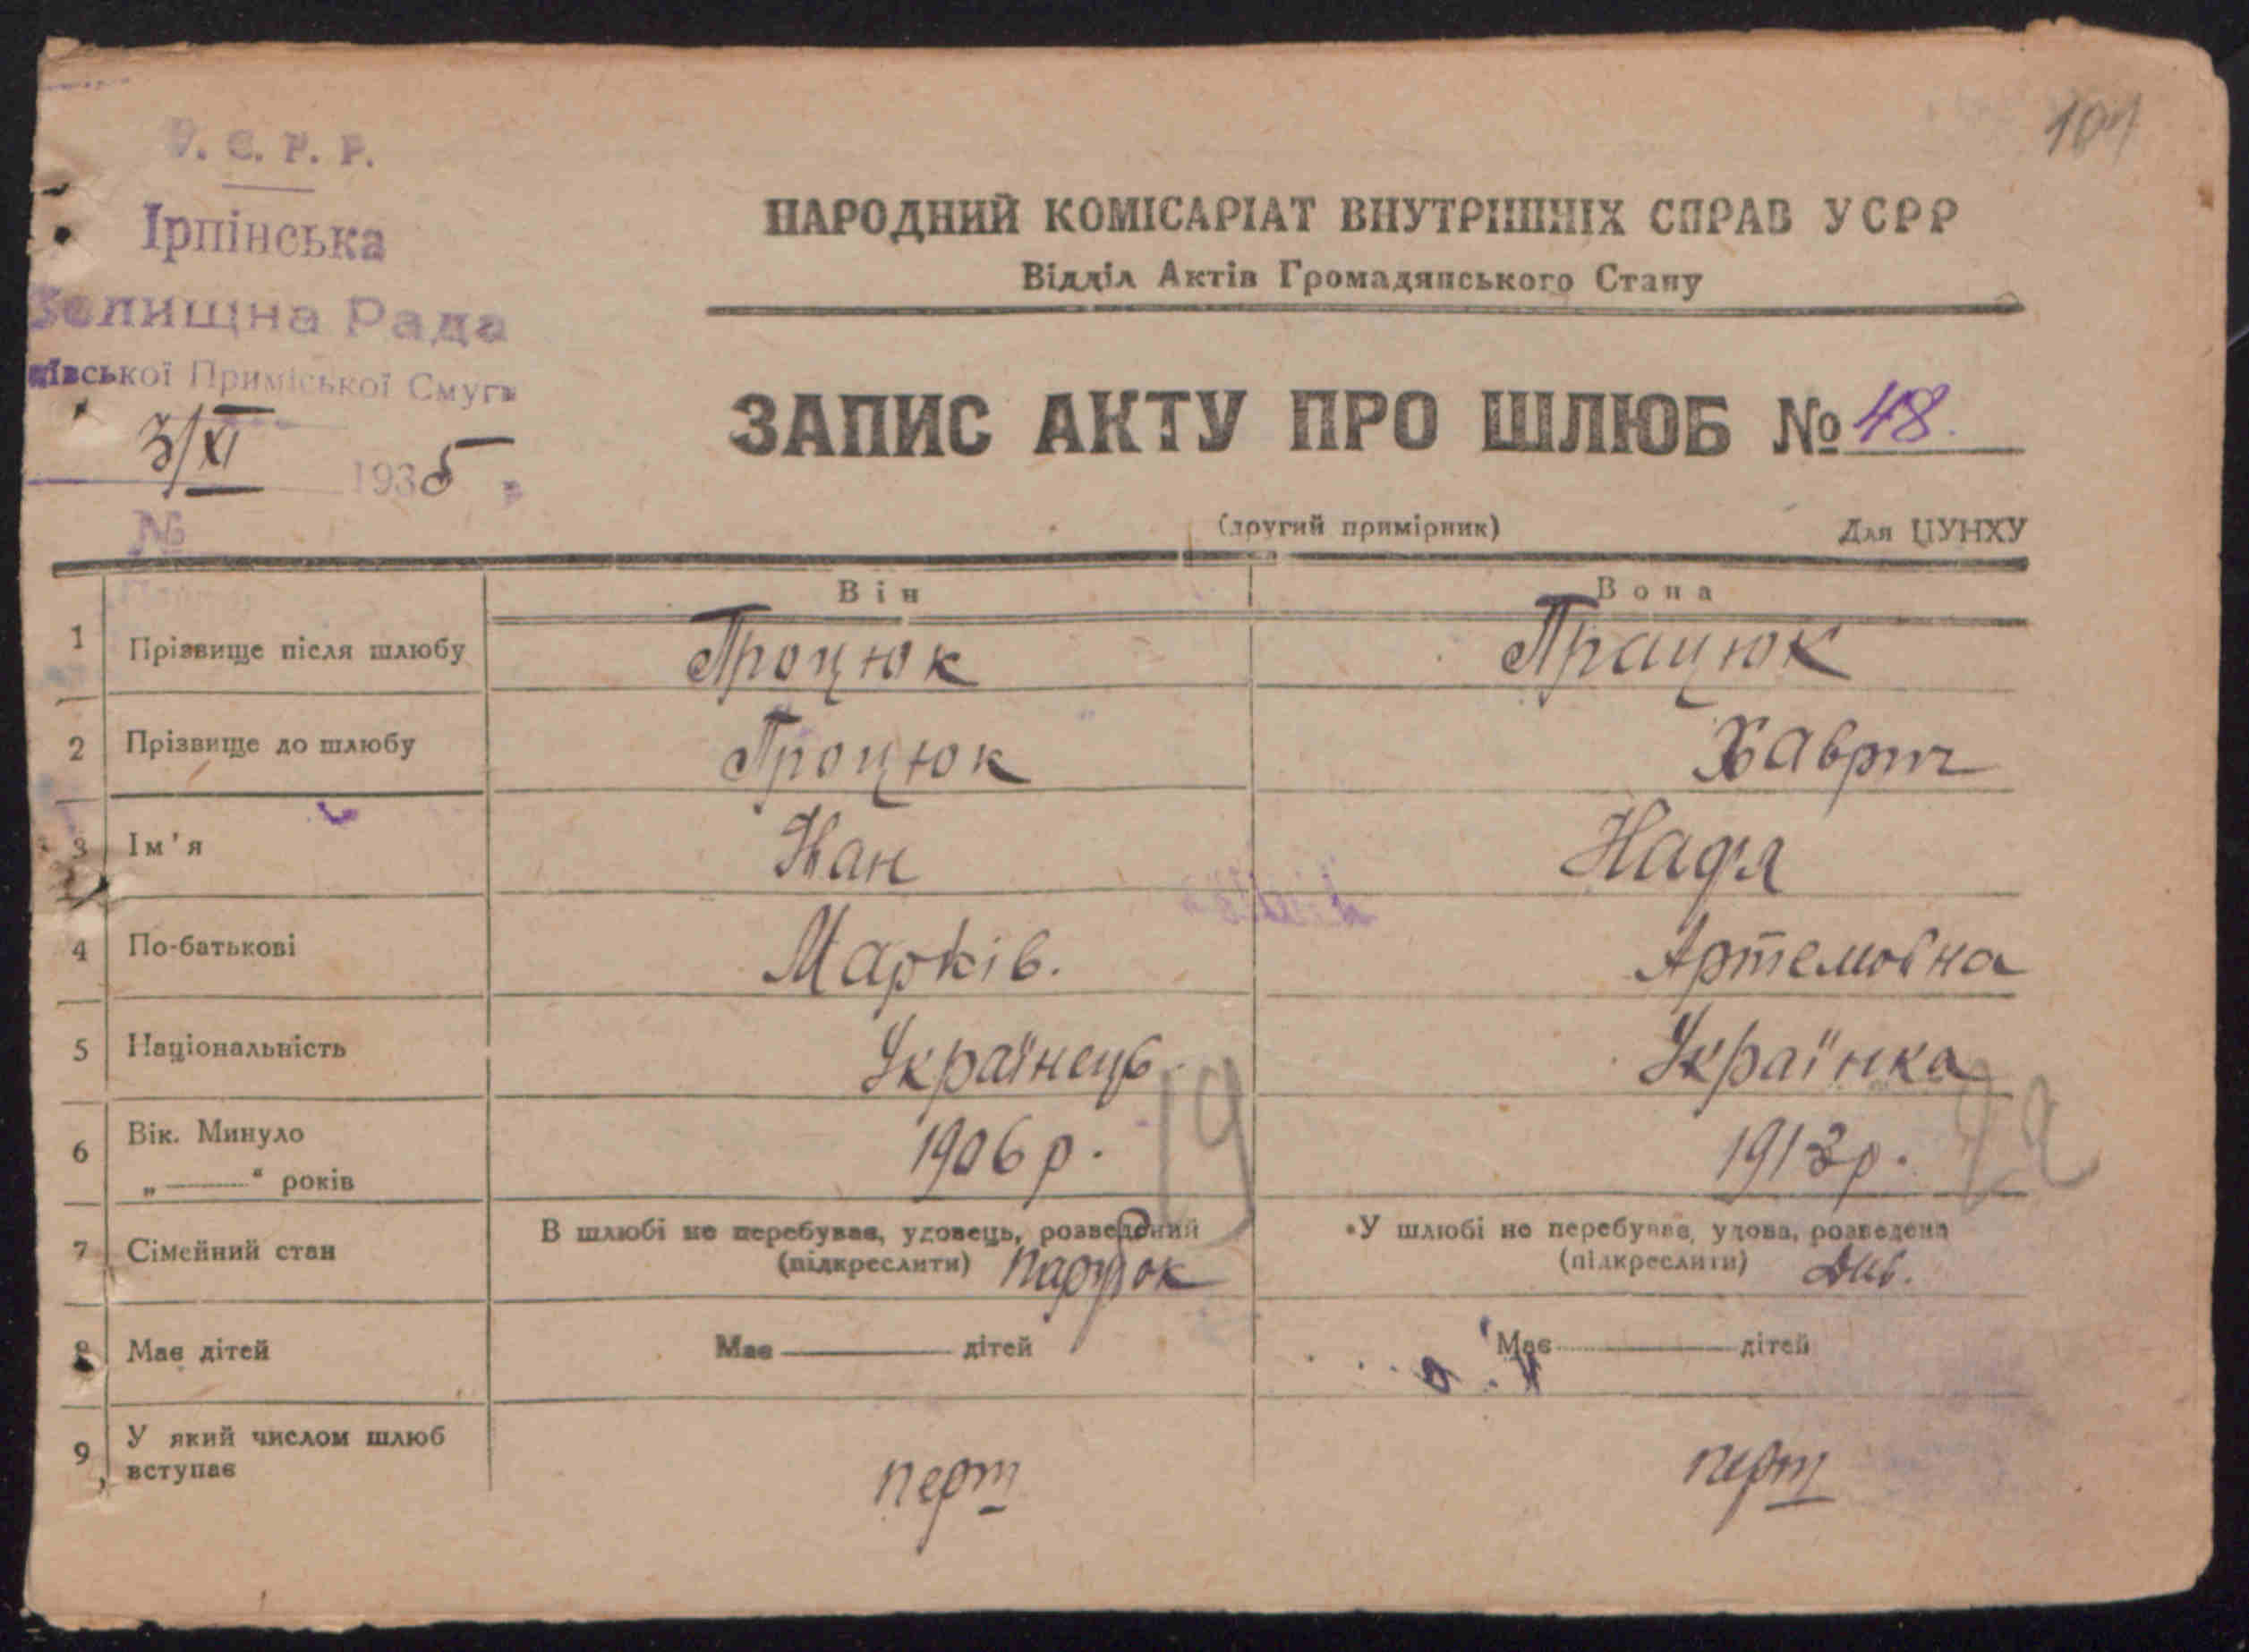 У. С. Р. Р.
Ірпінська
Селищна Рада
Київської Приміської Смуги
3/XI 1935 р
№
107
НАРОДНИЙ КОМІСАРІАТ ВНУТРІШНІХ СПРАВ УСРР
Відділ Актів Громадянського Стану
ЗАПИС АКТУ ПРО ШЛЮБ № 48.
(другий примірник) Для ЦУНХУ
Він Вона
1 Прізвище після шлюбу Процюк Працюк
2 Прізвище до шлюбу Процюк
3 Ім'я Іван Надя
4 По-батькові Марків. Артемовна
5 Національність Українець Українка
6 Вік. Минуло 1906 р. 19 1913 р. 22
„ — “ років
7 Сімейний стан В шлюбі не перебував, удовець, розведений •У шлюбі не перебуває, удова, розведена
(підкреслити) парубок (підкреслити) Дів.
8 Має дітей Має — дітей Має — дітей
9 У який числом шлюб
вступає перш перш